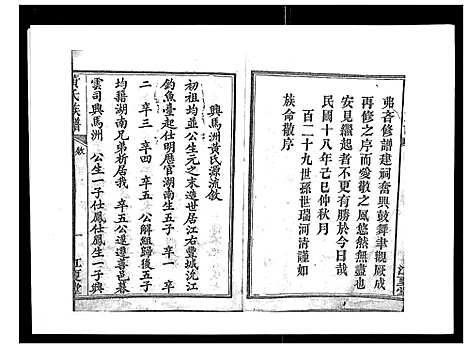 弗吝修譜建祠奮興鼓舞聿觀厥成
再修之序而愛敬之風悠然無盡
安見繼起者不更有勝於今日哉
民國十八年己巳仲秋月
百二十九世孫世瑞河清謹如
族命敬序
興馬洲黃氏源流敘
初祖均並公生元之末居江右豐城沅江
釣魚臺起仕明應官湖南生五子 卒一
二 卒三 卒四 卒五 公解組歸後五子
均籍湖南兄弟析居我 卒五公運遵善邑暮
雲司興馬洲 公生一子仕鳳仕鳳生一子興
黃氏族譜 敘 一 江夏堂